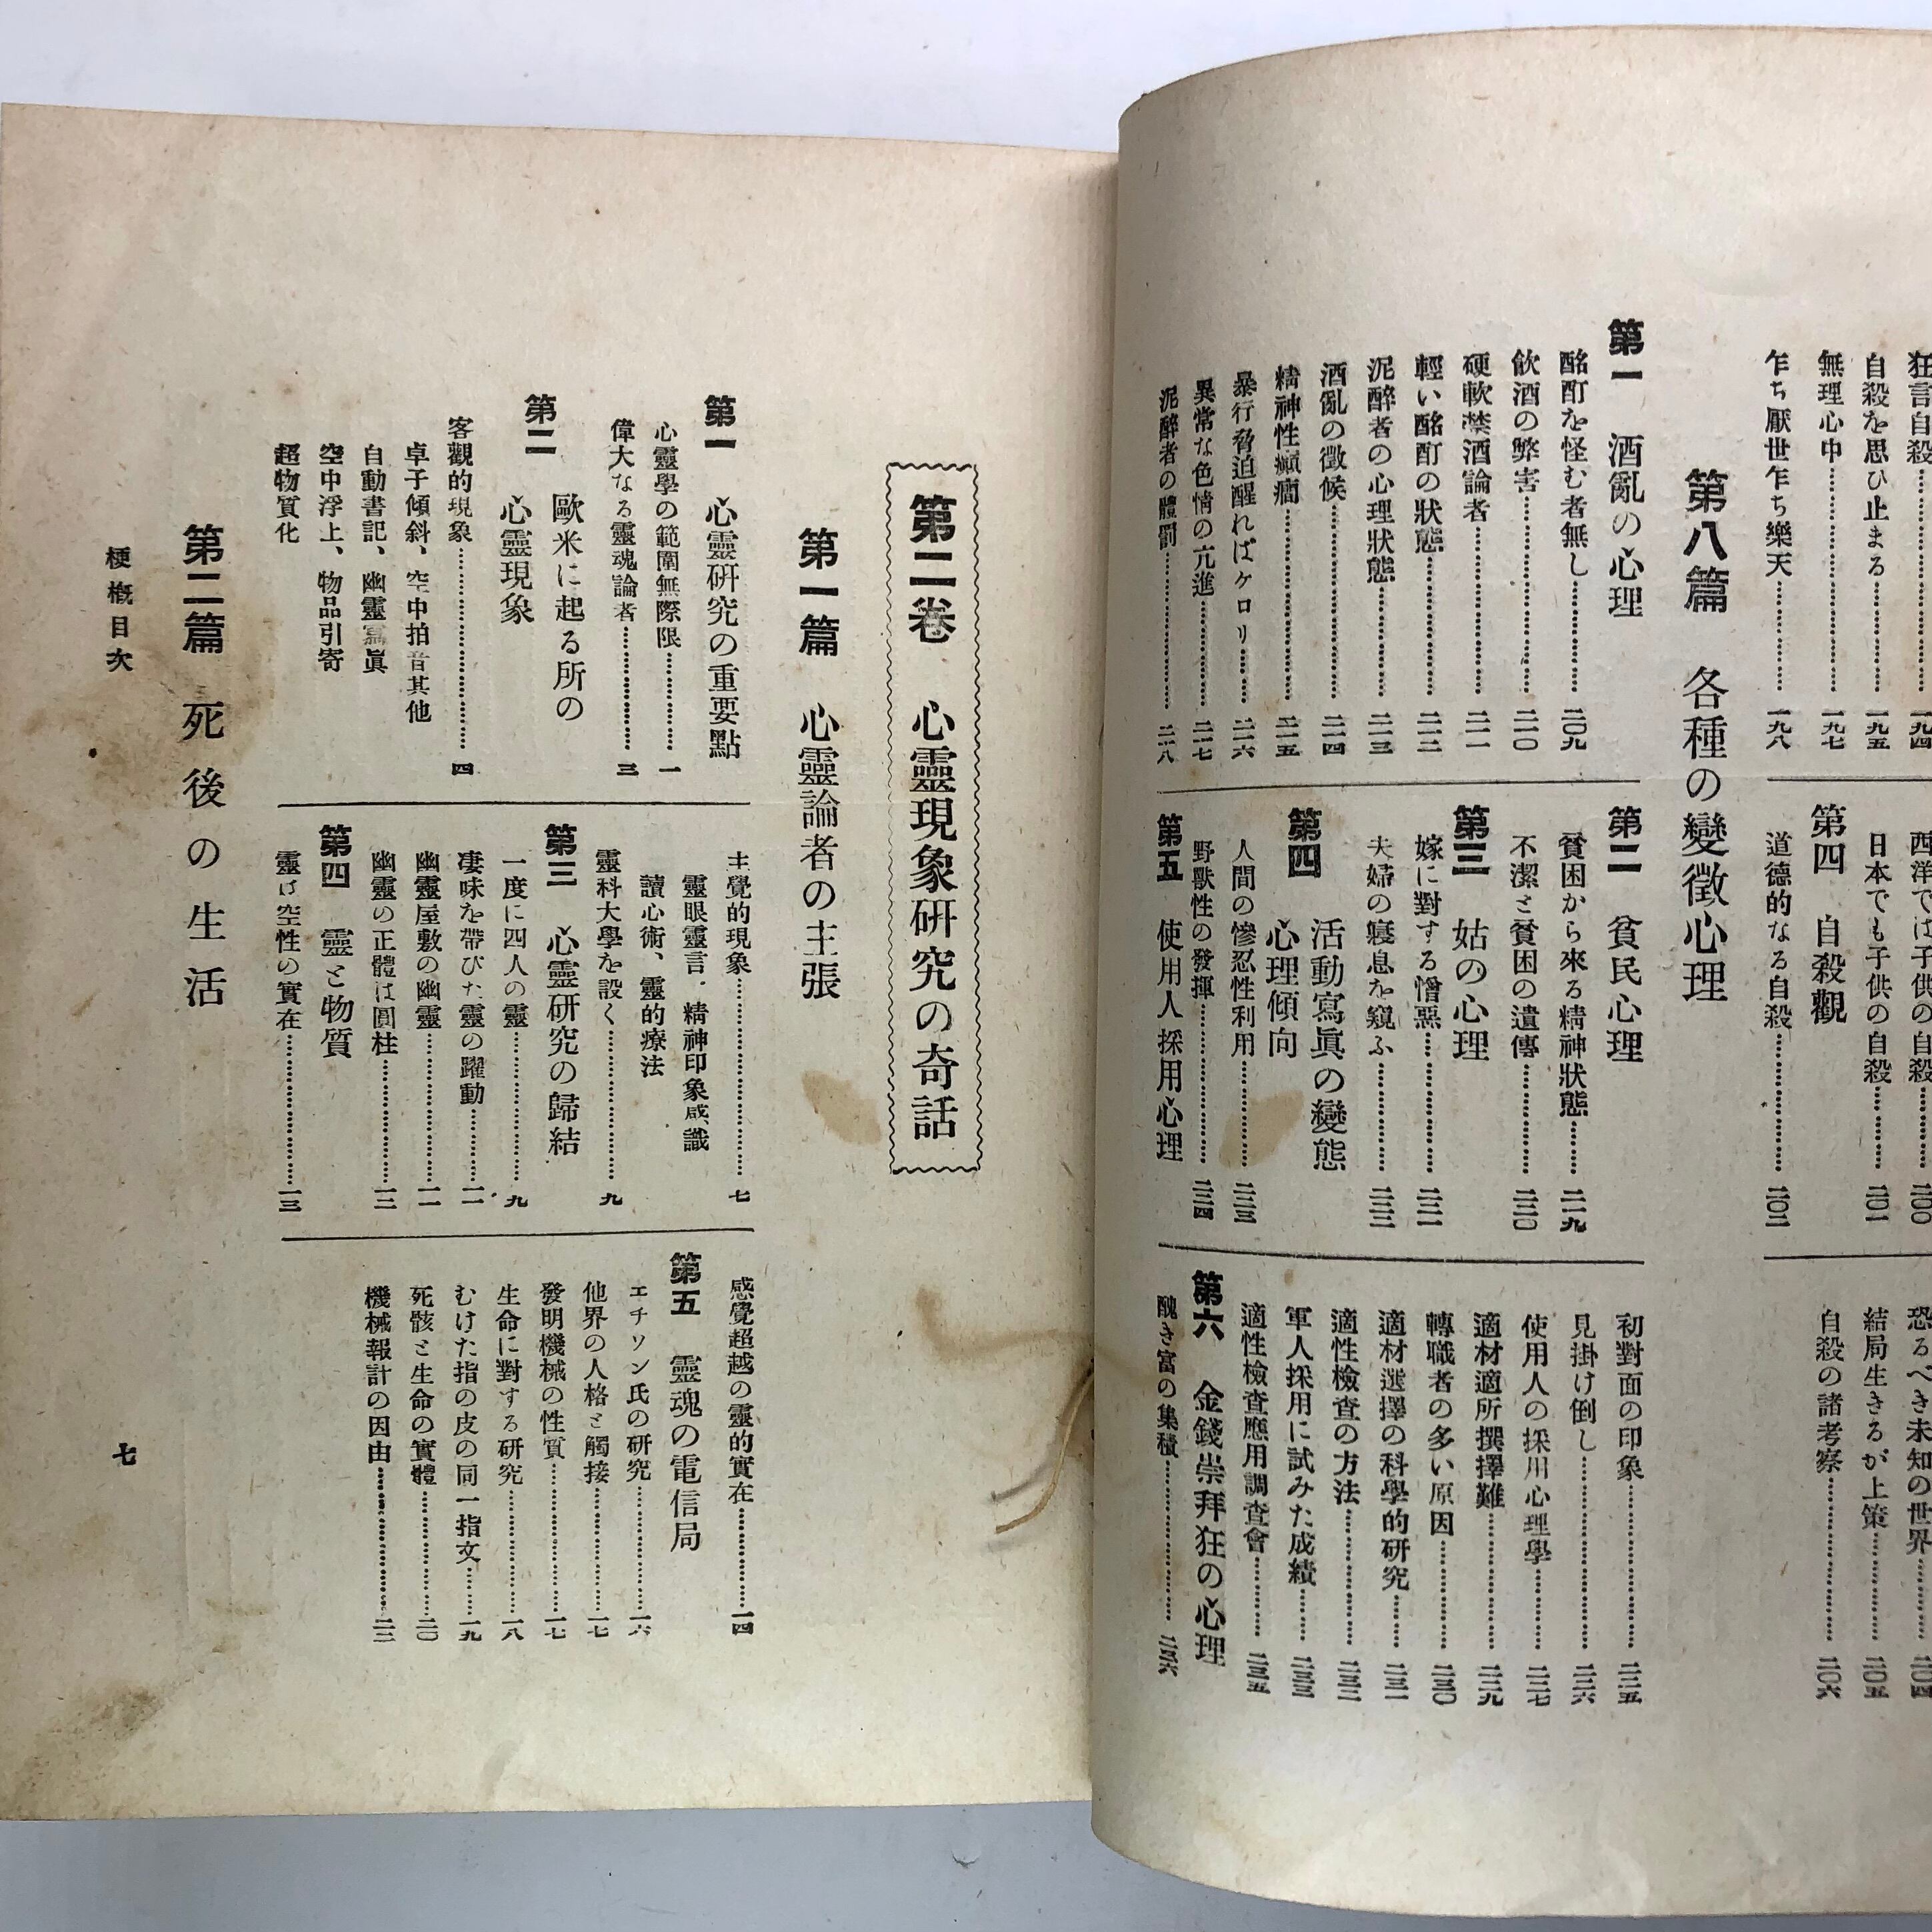 狂言自殺……………一九四
自殺を思ひ止まる……………一九五
無理心中……………一九七
乍ち厭世乍ち樂天……………一九八
西洋では子供の自殺……………二〇〇
日本でも子供の自殺……………二〇一
第四 自殺觀
道德的なる自殺……………二〇二
恐るべき未知の世界……………二〇四
結局生きるが上策……………二〇五
自殺の諸考察……………二〇六
第八篇 各種の變徵心理
第一 酒亂の心理
酩酊を怪む者無し……………二〇九
飮酒の弊害……………二一〇
硬軟禁酒論者……………二一一
輕い酩酊の狀態……………二一二
泥醉者の心理狀態……………二一三
酒亂の徵候……………二一四
精神性癲癇……………二一五
暴行脅迫醒ればケロリ……………二一六
異常な色情の亢進……………二一七
泥醉者の體罰……………二一八
第二 貧民心理
貧困から來る精神狀態……………二一九
不潔と貧困の遺傳……………二二〇
第三 姑の心理
嫁に對する憎惡……………二二一
夫婦の寢息を窺ふ……………二二二
第四 活動寫眞の變態
心理傾向
人間の慘忍性利用……………二二三
野獸性の發揮……………二二四
第五 使用人採用心理
初對面の印象……………二二五
見掛け倒し……………二二六
使用人の採用心理學……………二二七
適材適所撰擇難……………二二九
轉職者の多い原因……………二三〇
適材選擇の科學的研究……………二三一
適性檢査の方法……………二三二
軍人採用に試みた成績……………二三三
適性檢査應用調査會……………二三五
第六 金錢崇拜狂の心理
醜き富の集積……………二三六
第二卷 心靈現象研究の奇話
第一篇 心靈論者の主張
第一 心靈研究の重要點
心靈學の範圍無際限……………一
偉大なる靈魂論者……………三
第二 歐米に起る所の
心靈現象
客觀的現象……………四
卓子傾斜、空中拍音其他
自動書記、幽靈寫眞
空中浮上、物品引寄
超物質化
主覺的現象……………七
靈眼靈言、精神印象感識
讀心術、靈的療法
靈科大學を設く……………九
第三 心靈研究の歸結
一度に四人の靈……………九
凄味を帶びた靈の躍動……………一一
幽靈屋敷の幽靈……………一一
幽靈の正體は圓柱……………一二
第四 靈と物質
靈は空性の實在……………一三
感覺超越の靈的實在……………一四
第五 靈魂の電信局
エヂソン氏の研究……………一六
他界の人格と觸接……………一七
發明機械の性質……………一七
生命に對する研究……………一八
むけた指の皮の同一指文……………一九
死骸と生命の實體……………二〇
機械報計の因由……………二二
第二篇 死後の生活
梗槪目次
七